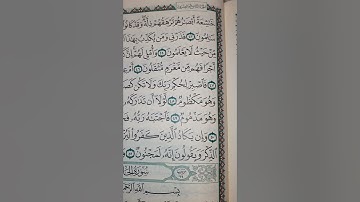 خَٰشِعَةً أَبْصَٰرُهُمْ تَرْهَقُهُمْ ذِلَّةٌ وَقَدْ كَانُوا
سَٰلِمُونَ ٤٣ فَذَرْنِى وَمَن يُكَذِّبُ بِهَٰذَا
مِّنْ حَيْثُ لَا يَعْلَمُونَ ٤٤ وَأُمْلِى لَهُمْ
أَجْرًا فَهُم مِّن مَّغْرَمٍ مُّثْقَلُونَ ٤٦
فَٱصْبِرْ لِحُكْمِ رَبِّكَ وَلَا تَكُن
وَهُوَ مَكْظُومٌ ٤٨ لَّوْلَآ أَن تَدَٰرَكَهُۥ
وَهُوَ مَذْمُومٌ ٤٩ فَٱجْتَبَٰهُ رَبُّهُۥ
وَإِن يَكَادُ ٱلَّذِينَ كَفَرُوا۟
ٱلذِّكْرَ وَيَقُولُونَ إِنَّهُۥ لَمَجْنُونٌ ٥١
سُورَةُ
بِسْمِ ٱللَّهِ